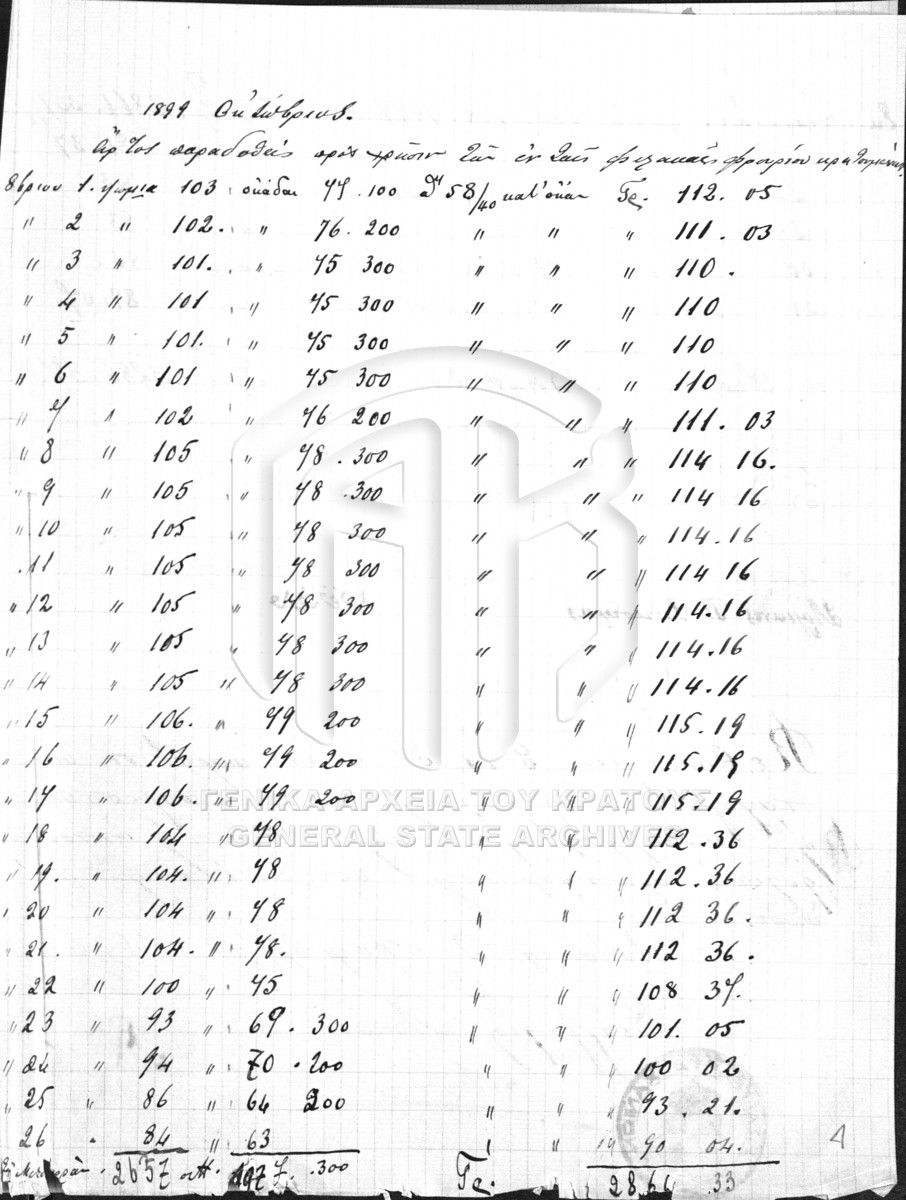 1899 Οκτώβριος.
Άρτος παραδοθείς προς χρήσιν των εν ταις φυλακαίς φρουρίου κρατουμένων
8βρίου 1. ψωμία 103 οκάδαι 77.100 58/40 κατ' οκάν Γρ. 112. 05
" 2 " 102. " 76. 200 " " " 111. 03
" 3 " 101. " 75 300 " " " 110.
" 4 " 101 " 75 300 " " " 110
" 5 " 101. " 75 300 " " " 110
" 6 " 101 " 75 300 " " " 110
" 7 " 102 " 76 200 " " " 111. 03
" 8 " 105 " 78. 300 " " " 114 16.
" 9 " 105 " 78 .300 " " " 114 16
" 10 " 105 " 78 300 " " " 114.16
" 11 " 105 " 78 300 " " " 114 16
" 12 " 105 " 78 300 " " " 114.16
" 13 " 105 " 78 300 " " " 114.16
" 14 " 105 " 78 300 " " " 114.16
" 15 " 106. " 79 200 " " " 115.19
" 16 " 106. " 79 200 " " " 115.19
" 17 " 106. " 79 200 " " " 115.19
ΓΕΝΙΚΑ ΑΡΧΕΙΑ ΤΟΥ ΚΡΑΤΟΥΣ
" 18 " 104 " 78 " " " 112.36
GENERAL STATE ARCHIVES
" 19. " 104. " 78 " " " 112.36
" 20 " 104 " 78 " " " 112 36.
" 21. " 104. " 78. " " " 112 36.
" 22 " 100 " 75 " " " 108 37.
" 23 " 93 " 69. 300 " " " 101. 05
" 24 " 94 " 70 .200 " " " 100 02
" 25 " 86 " 64 200 " " " 93. 21.
26 " 84 " 63 " " " 90 04.
2657 .300 Γρ. 33
4